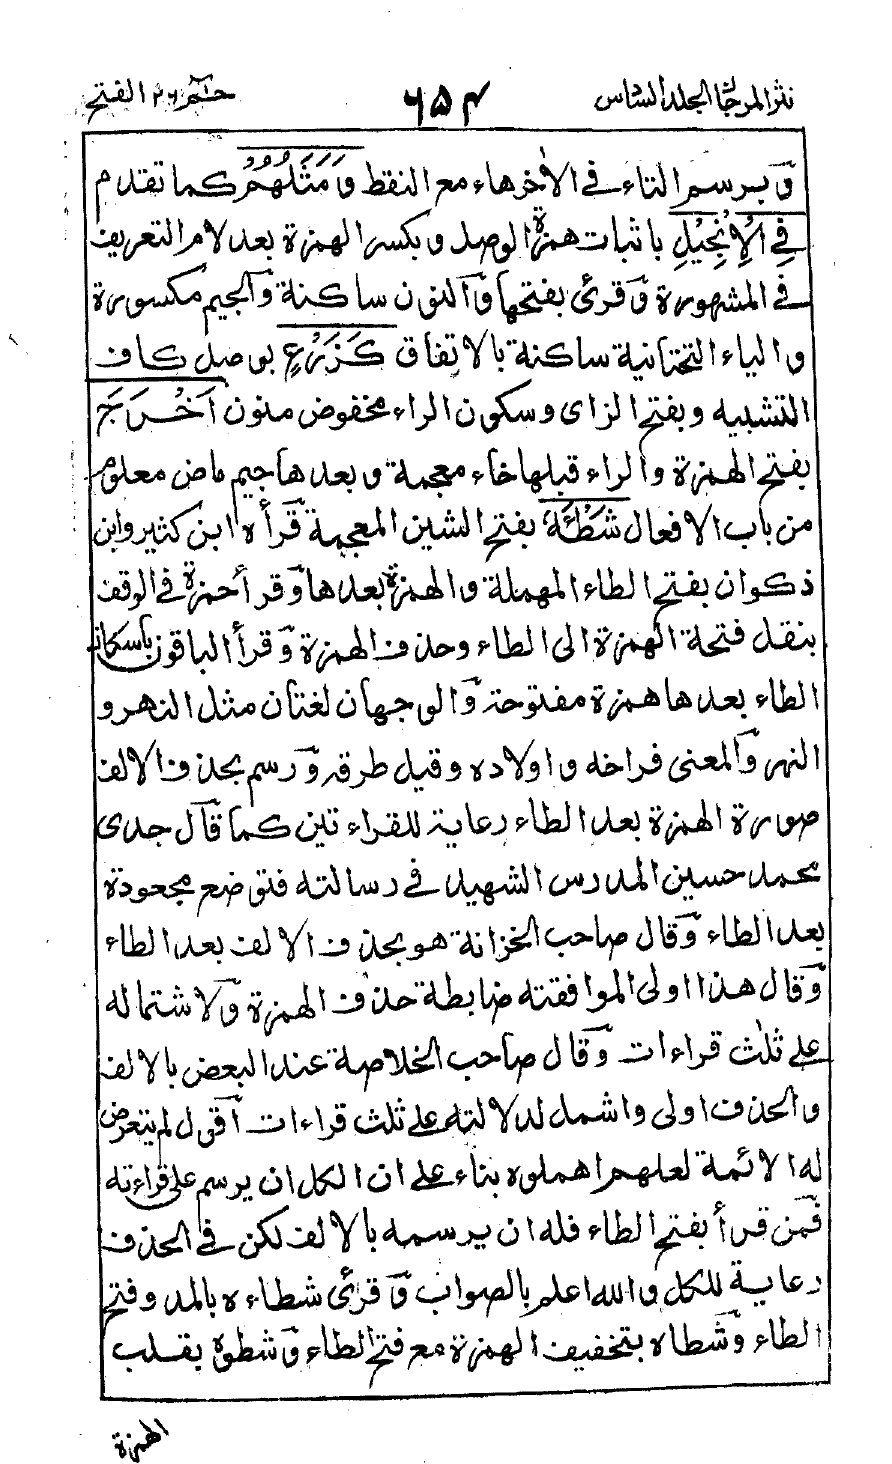 نثر المرجان الجلد السادس ٦٥٤ حٰم ٢٦ الفتح
وَيرسم التاء فى الاٰخرهاء مع النقط وَمَثَلُهُمْ كما تقدم
فِي الْاِنْجِيْلِ باثبات همزة الوصل وبكسر الهمزة بعد لام التعريف
فى المشهورة وَقرئ بفتحها وَالنون ساكنة وَالجيم مكسورة
والياء التحتانية ساكنة بالاتفاق كَزَرْعٍ بوصل كاف
التشبيه وبفتح الزاى وسكون الراء مخفوض منون اَخْرَجَ
بفتح الهمزة والراء قبلها خاء معجمة وبعدها جيم ماض معلوم
من باب الافعال شَطْئَهٗ بفتح الشين المعجمة قَرأه ابن كثير وابن
ذكوان بفتح الطاء المهملة والهمزة بعدها وَقرأ حمزة فى الوقف
بنقل فتحة الهمزة الى الطاء وحذف الهمزة وَقرأ الباقون باسكان
الطاء بعدها همزة مفتوحة وَالوجهان لغتان مثل النهر و
النهر وَالمعنى فراخه واولاده وقيل طرقه وَرسم بحذف الالف
صورة الهمزة بعد الطاء رعاية للقراءتين كما قال جدى
محمد حسين المدرس الشهيد فى رسالته فتوضع مجعودة
بعد الطاء وَقال صاحب الخزانة هو بحذف الالف بعد الطاء
وَقال هذا اولى لموافقته ضابطة حذف الهمزة وَلاشتماله
على ثلٰث قراءات وَقال صاحب الخلاصة عند البعض بالالف
والحذف اولى واشمل لدلالته على ثلث قراءات اَقول لم يتعرض
له الائمة لعلهم اهملوه بناء على ان الكل ان يرسم على قراءته
فَمن قرأ بفتح الطاء فله ان يرسمه بالالف لكن فى الحذف
رعاية للكل والله اعلم بالصواب وَقرئ شطاءه بالمد وفتح
الطاء وَشطاه بتخفيف الهمزة مع فتح الطاء وَشطوه بقلب
الهمزة